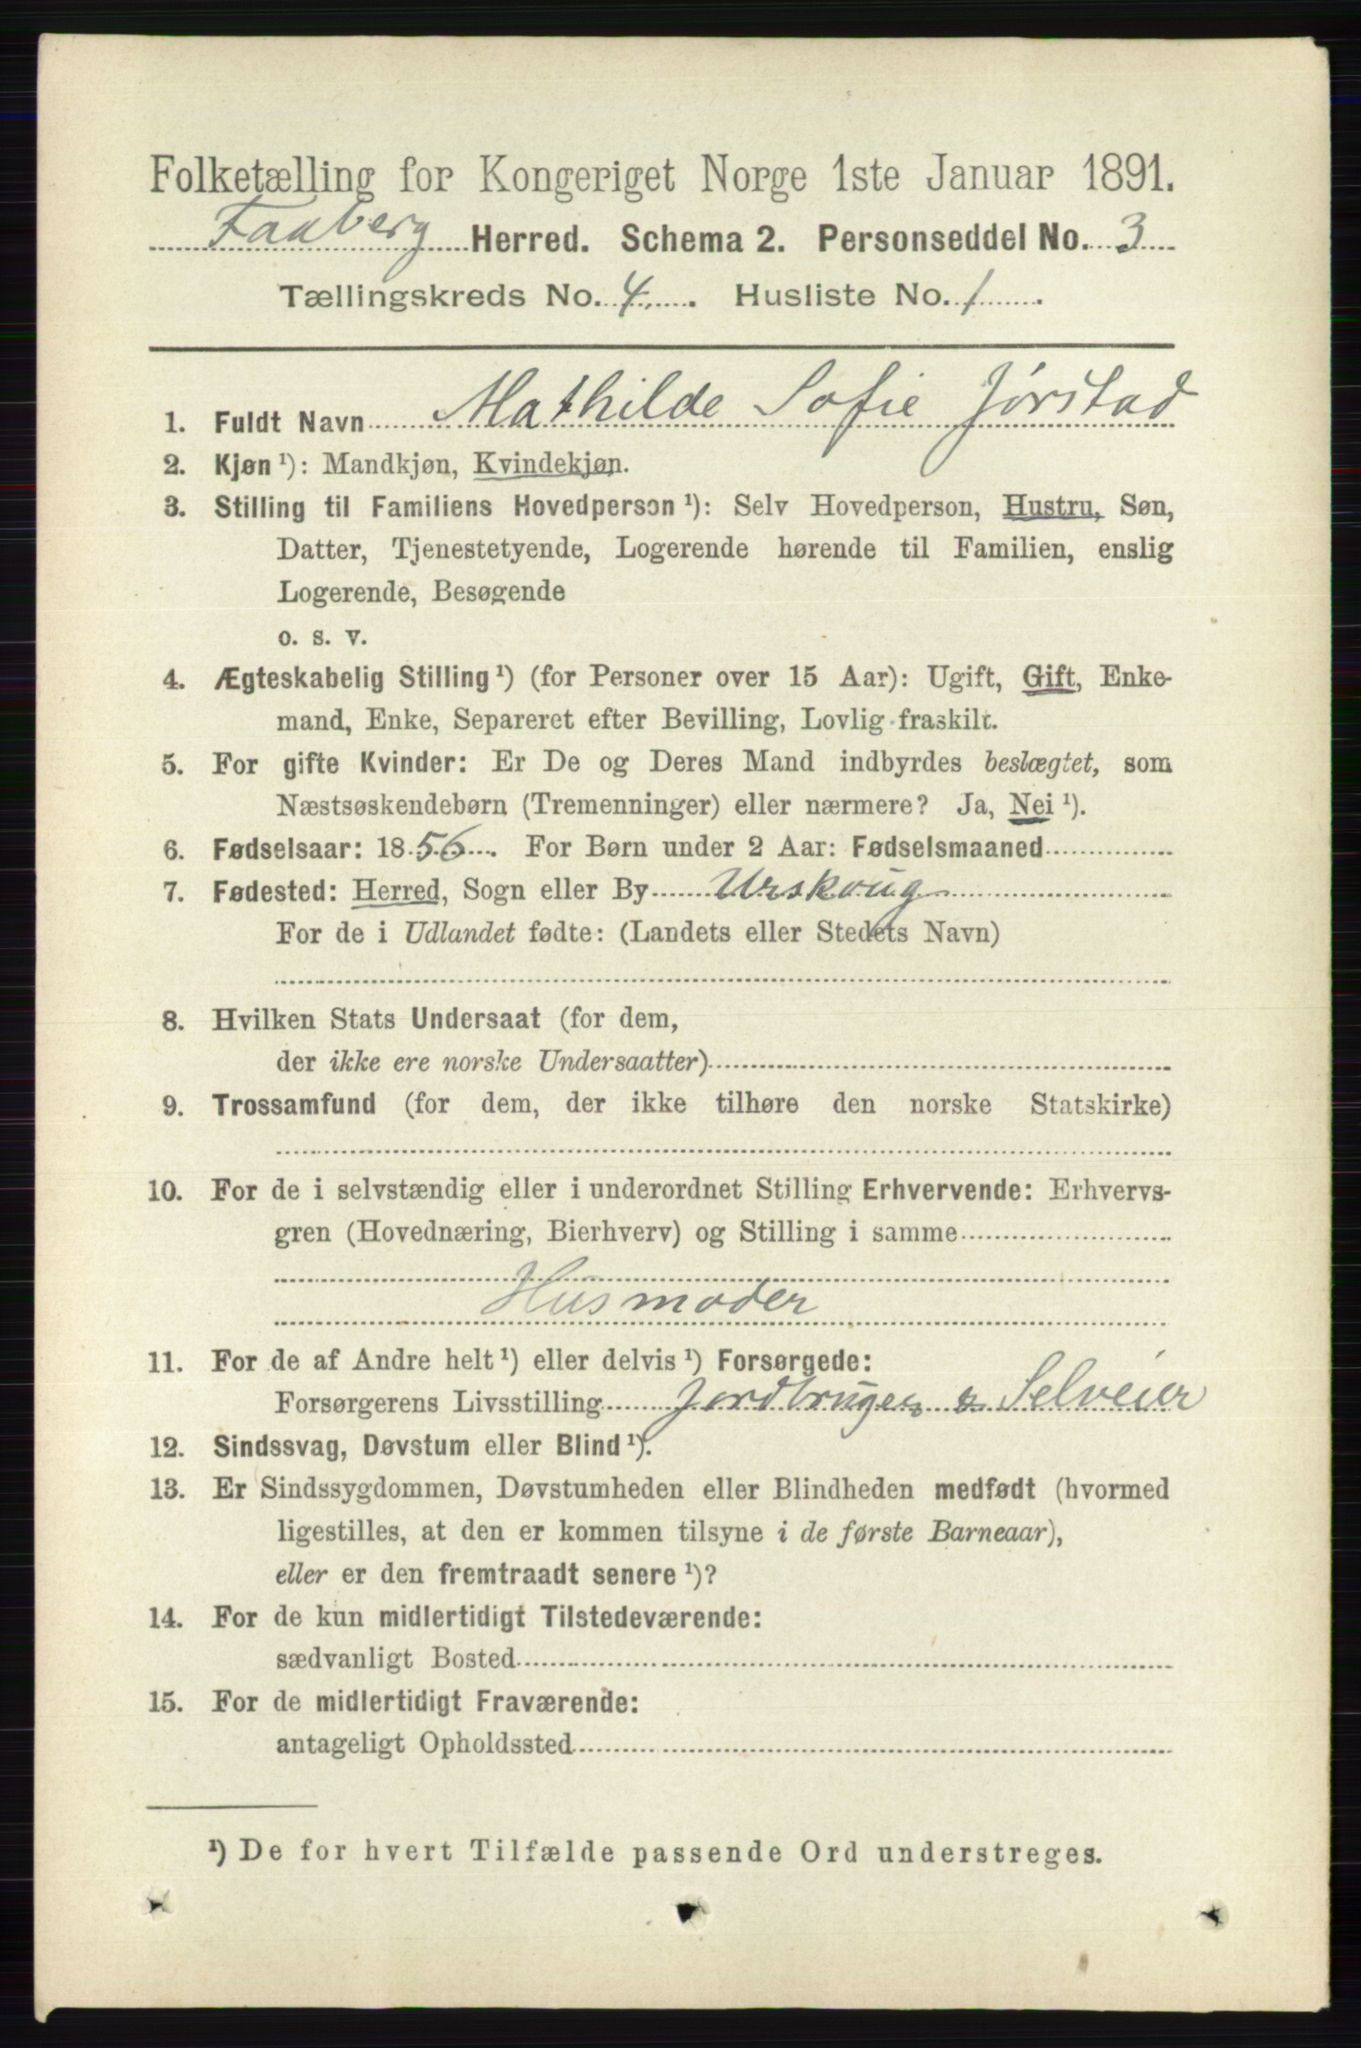 Folketælling for Kongeriget Norge 1ste Januar 1891.
Faaberg Herred. Schema 2. Personseddel No. 3
Tællingskreds No. 4. Husliste No. 1.
1. Fuldt Navn Mathilde Sofie Jørstad
2. Kjøn ¹): Mandkjøn, Kvindekjøn.
3. Stilling til Familiens Hovedperson ¹): Selv Hovedperson, Hustru, Søn,
Datter, Tjenestetyende, Logerende hørende til Familien, enslig
Logerende, Besøgende
o. s. v.
4. Ægteskabelig Stilling ¹) (for Personer over 15 Aar): Ugift, Gift, Enke-
mand, Enke, Separeret efter Bevilling, Lovlig fraskilt.
5. For gifte Kvinder: Er De og Deres Mand indbyrdes beslægtet, som
Næstsøskendebørn (Tremenninger) eller nærmere? Ja, Nei ¹).
6. Fødselsaar: 1856. For Børn under 2 Aar: Fødselsmaaned
7. Fødested: Herred, Sogn eller By Urskoug
For de i Udlandet fødte: (Landets eller Stedets Navn)
8. Hvilken Stats Undersaat (for dem,
der ikke ere norske Undersaatter)
9. Trossamfund (for dem, der ikke tilhøre den norske Statskirke)
10. For de i selvstændig eller i underordnet Stilling Erhvervende: Erhvervs-
gren (Hovednæring, Bierhverv) og Stilling i samme
Husmoder
11. For de af Andre helt ¹) eller delvis ¹) Forsørgede:
Forsørgerens Livsstilling Jordbruger & Selveier
12. Sindssvag, Døvstum eller Blind ¹).
13. Er Sindssygdommen, Døvstumheden eller Blindheden medfødt (hvormed
ligestilles, at den er kommen tilsyne i de første Barneaar),
eller er den fremtraadt senere ¹)?
14. For de kun midlertidigt Tilstedeværende:
sædvanligt Bosted
15. For de midlertidigt Fraværende:
antageligt Opholdssted
¹) De for hvert Tilfælde passende Ord understreges.